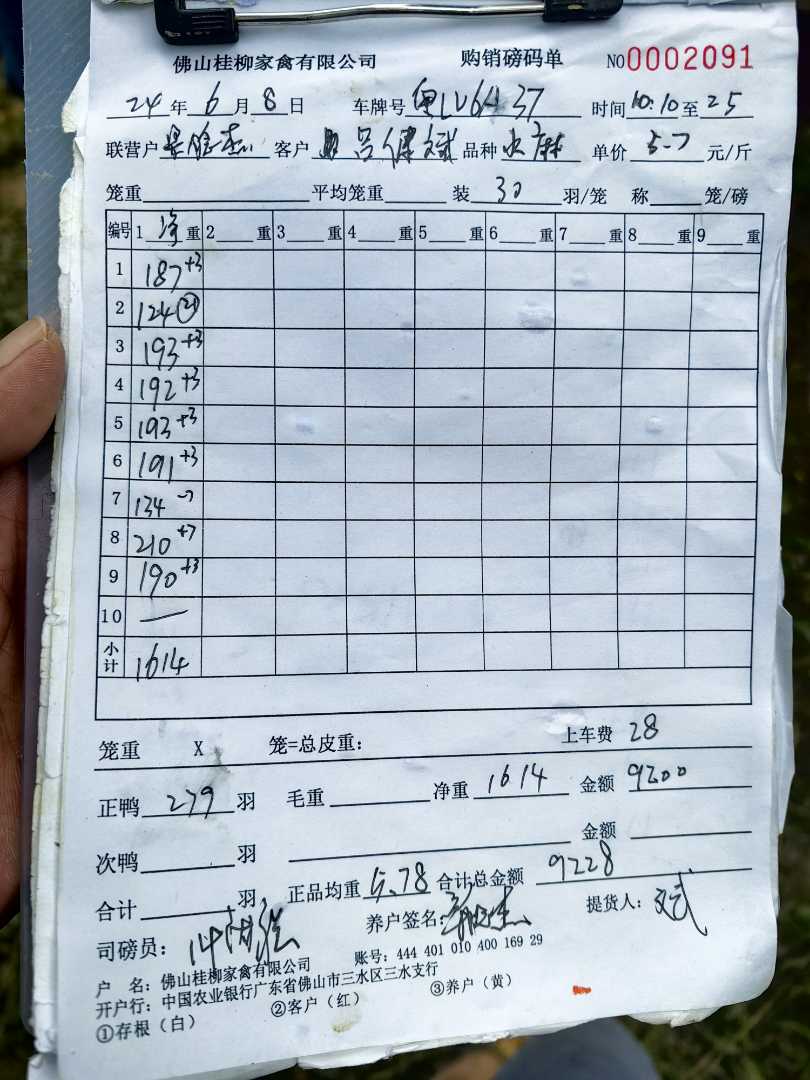 佛山桂柳家禽有限公司 购销磅码单 NO0002091
24年6月8日 车牌号 LV6A37 时间10:10至25
联营户 客户 吕伟斌 品种 单价 5.7 元/斤
笼重 平均笼重 装 30 羽/笼 称 笼/磅
编号 1 净 重 2 重 3 重 4 重 5 重 6 重 7 重 8 重 9 重
1 187 +3
2 124 21
3 193 +3
4 192 +3
5 193 +3
6 191 +3
7 134 -7
8 210 +7
9 190 +3
10 —
小计 1614
笼重 X 笼=总皮重: 上车费 28
正鸭 279 羽 毛重 净重 1614 金额 9200
次鸭 羽 金额
合计 羽 正品均重 5.78 合计总金额 9228
司磅员: 养户签名: 提货人: 文武
户 名: 佛山桂柳家禽有限公司 账号: 444 401 010 400 169 29
开户行: 中国农业银行广东省佛山市三水区三水支行
①存根(白) ②客户(红) ③养户(黄)